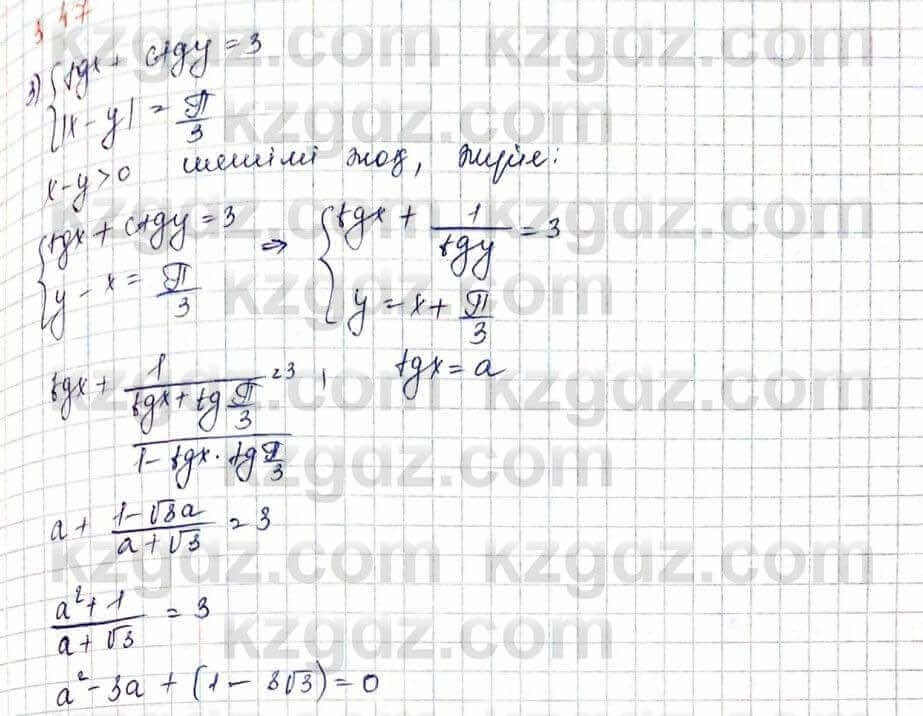 3 47
3) { tgx + ctgy = 3
{ |x - y| = π/3
x - y > 0 шешімі жоқ,
{ tgx + ctgy = 3 ⇒ { tgx + 1/tgy = 3
{ y - x = π/3 { y = x + π/3
tgx + 1/((tgx + tg π/3)/(1 - tgx · tg π/3)) = 3, tgx = a
a + (1 - √3a)/(a + √3) = 3
(a² + 1)/(a + √3) = 3
a² - 3a + (1 - 3√3) = 0
kzgdz.com